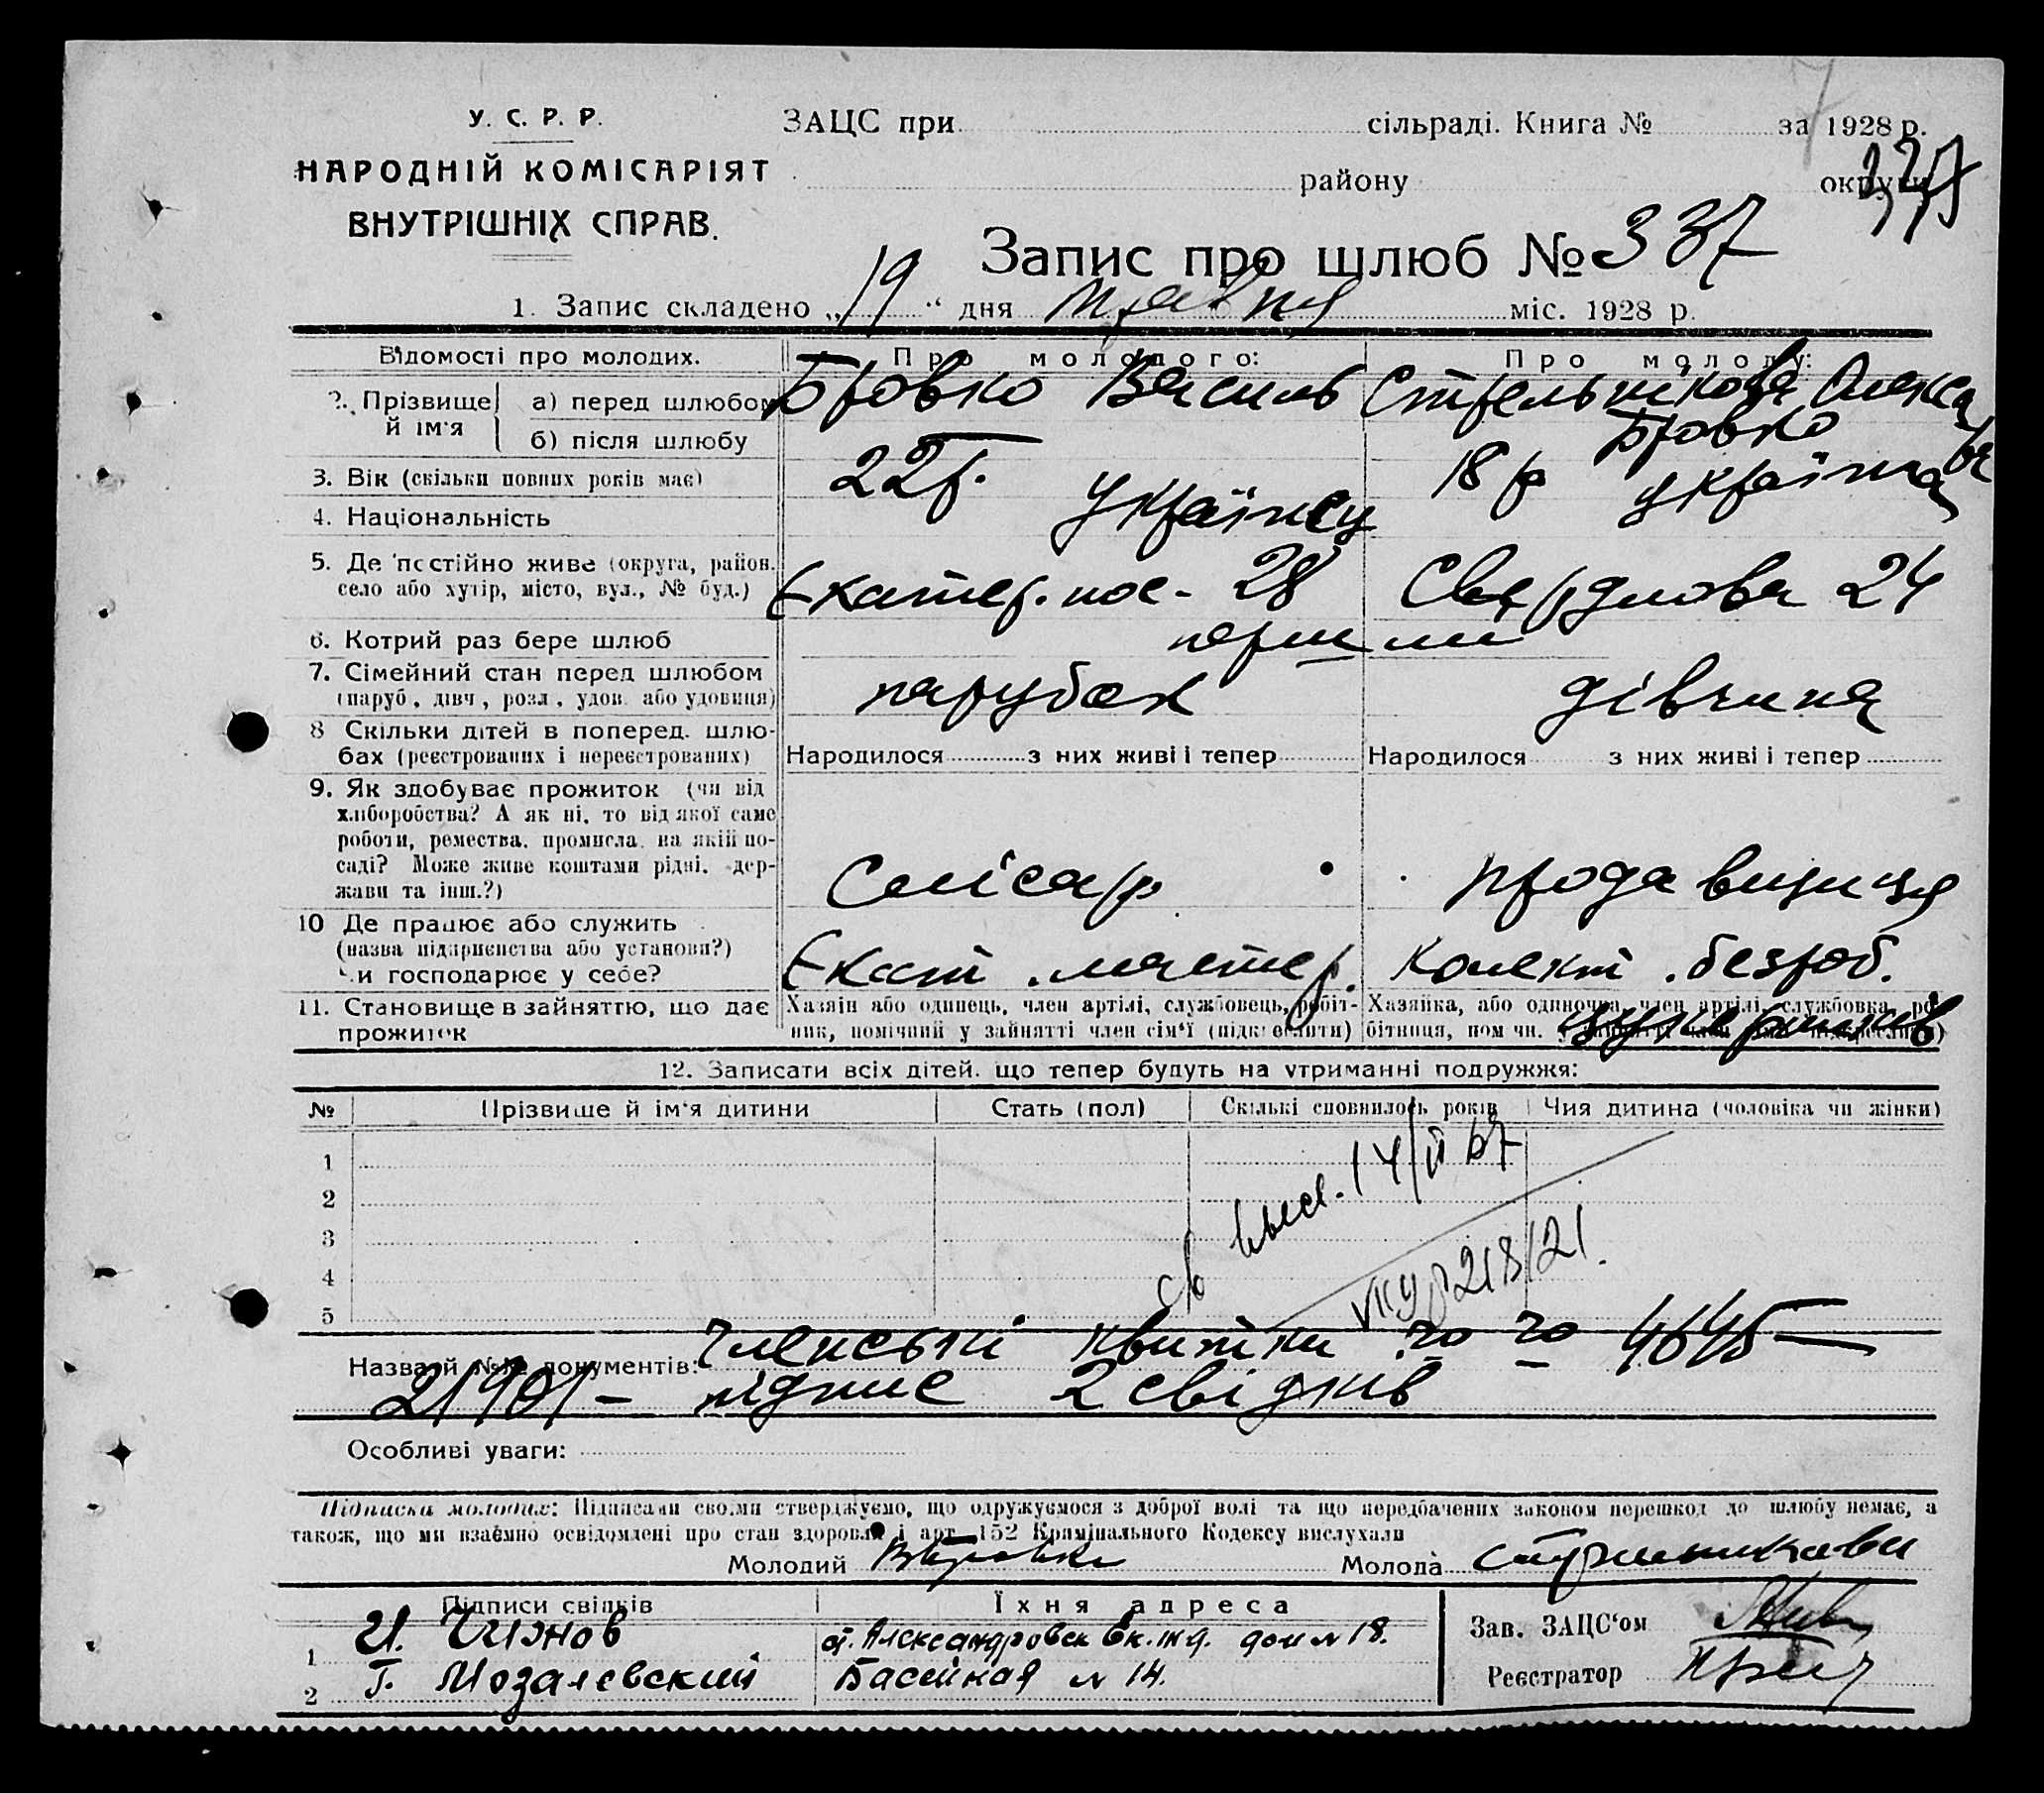 У. С. Р. Р.
НАРОДНІЙ КОМІСАРІЯТ
ВНУТРІШНІХ СПРАВ.
ЗАЦС при сільраді. Книга № за 1928 р.
району округи
337
Запис про шлюб № 337
1. Запис складено „19“ дня травня міс. 1928 р.
Відомості про молодих. Про молодого: Про молоду:
2. Прізвище й ім'я а) перед шлюбом Бровко Василь Стрельнікова Олекса
б) після шлюбу Бровко
3. Вік (скільки повних років має) 22 р. 18 р
4. Національність українец україн
5. Де постійно живе (округа, район,
село або хутір, місто, вул., № буд.) Екатер. пос- 28 Свердлова 24
6. Котрий раз бере шлюб перший
7. Сімейний стан перед шлюбом
(паруб, дівч, розл, удов. або удовиця) парубок дівчина
8 Скільки дітей в поперед. шлю-
бах (реєстрованих і нереєстрованих) Народилося з них живі і тепер Народилося з них живі і тепер
9. Як здобуває прожиток (чи від
хліборобства? А як ні, то від якої саме
роботи, ремества, промисла, на якій по-
саді? Може живе коштами рідні, дер-
жави та інш.?) Слісар продавщиця
10 Де працює або служить
(назва підприємства або установи?)
чи господарює у себе? Екат. мастер. колект. безроб.
11. Становище в зайняттю, що дає
прожиток
Хазяїн або одинець, член артілі, службовець, робіт-
ник, помічний у зайнятті член сім'ї (підкреслити)
Хазяйка, або одиночка, член артілі, службовка, ро-
бітниця, пом чн.
12. Записати всіх дітей, що тепер будуть на утриманні подружжя:
№ Прізвище й ім'я дитини Стать (пол) Скількі сповнилось років Чия дитина (чоловіка чи жінки)
1
2
3
4
5
св высл. 14/II 67
218/21.
Назва й №№ документів: Членські квитки 4645 —
21901 – підпис 2 свідків
Особливі уваги:
Підписка молодих: Підписами своїми стверджуємо, що одружуємося з доброї волі та що передбачених законом перешкод до шлюбу немає, а
також, що ми взаємно освідомлені про стан здоровля і арт. 152 Крямінального Кодексу вислухали
Молодий ВБровко Молода Стрельникова
Підписи свідків Їхня адреса
1 И. Чижов ст. Александровск Ек. ж д. дом № 18.
2 Г. Мозалевский Басейная № 14.
Зав. ЗАЦС'ом
Реєстратор